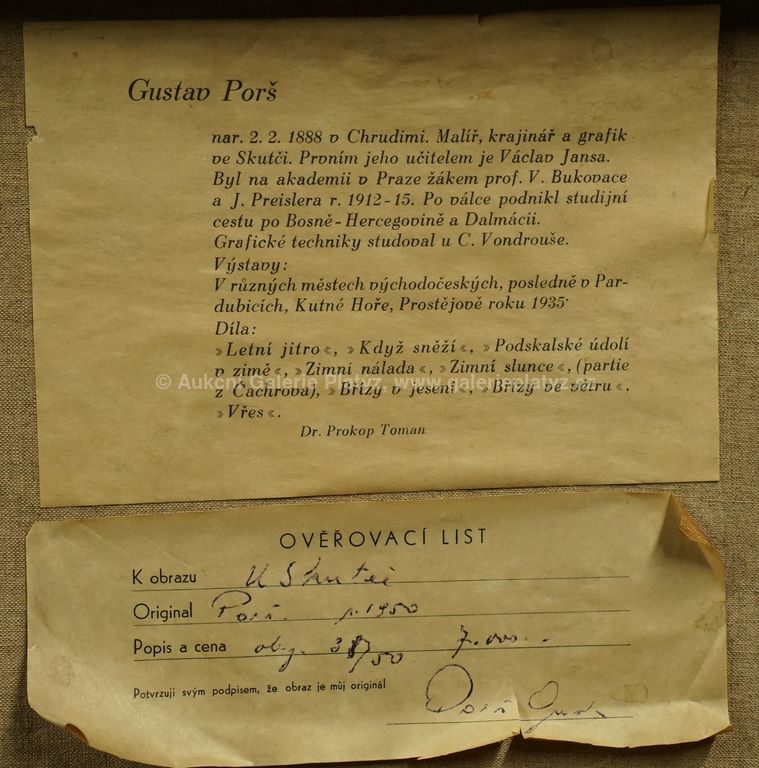 Gustav Porš
nar. 2. 2. 1888 v Chrudimi. Malíř, krajinář a grafik
ve Skutči. Prvním jeho učitelem je Václav Jansa.
Byl na akademii v Praze žákem prof. V. Bukovace
a J. Preislera r. 1912-15. Po válce podnikl studijní
cestu po Bosně-Hercegovině a Dalmácii.
Grafické techniky studoval u C. Vondrouše.
Výstavy:
V různých městech východočeských, posledně v Par-
dubicích, Kutné Hoře, Prostějově roku 1935.
Díla:
»Letní jitro«, »Když sněží«, »Podskalské údolí
v zimě«, »Zimní nálada«, »Zimní slunce«, (partie
© Aukční Galerie Platýz, www.galerieplatyz.cz
z Čachrova), »Břízy v jeseni«, »Břízy ve větru«,
»Vřes«.
Dr. Prokop Toman
OVĚŘOVACÍ LIST
K obrazu U Skutče
Original Porš. r. 1950
Popis a cena 7.000
Potvrzuji svým podpisem, že obraz je můj originál
Porš